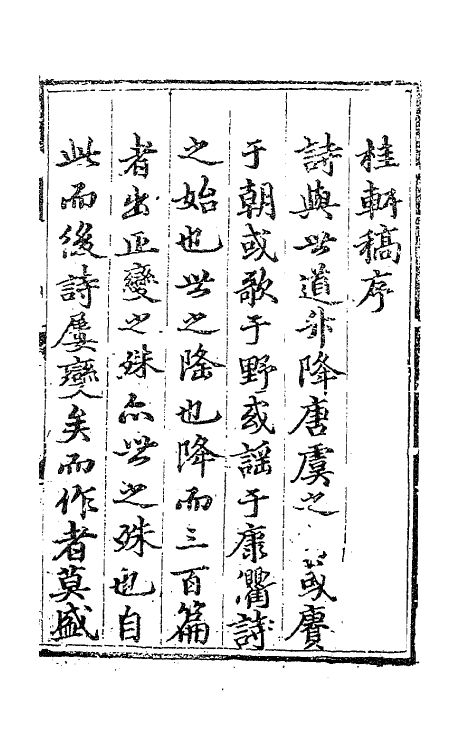 桂軒稿序
詩與世道升降唐虞之或賡
于朝或歌于野或謠于康衢詩
之始也世之隆也降而三百篇
者出正變之殊亦世之殊也自
此而後詩屢變矣而作者莫盛